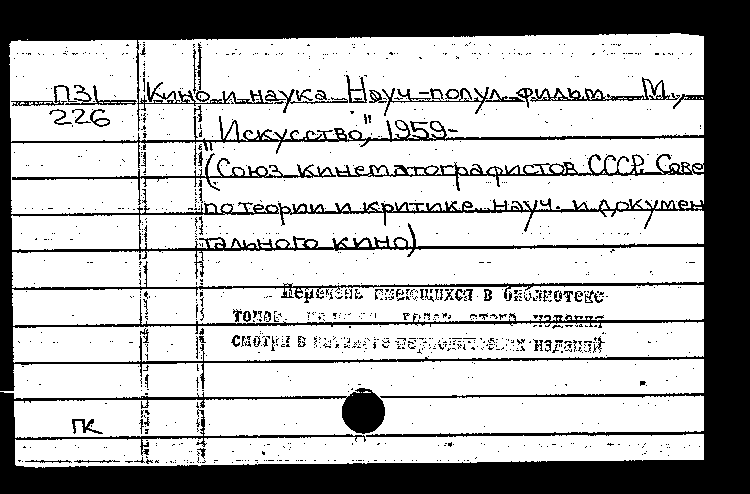 П31 Кино и наука. Науч-попул фильм. М.,
226 "Искусство", 1959-
(Союз кинематографистов СССР. Сове
по теории и критике науч. и докумен
тального кино)
Перечень имеющихся в библиотеке
томов, годов этого издания
смотри в каталоге периодических изданий
ПК